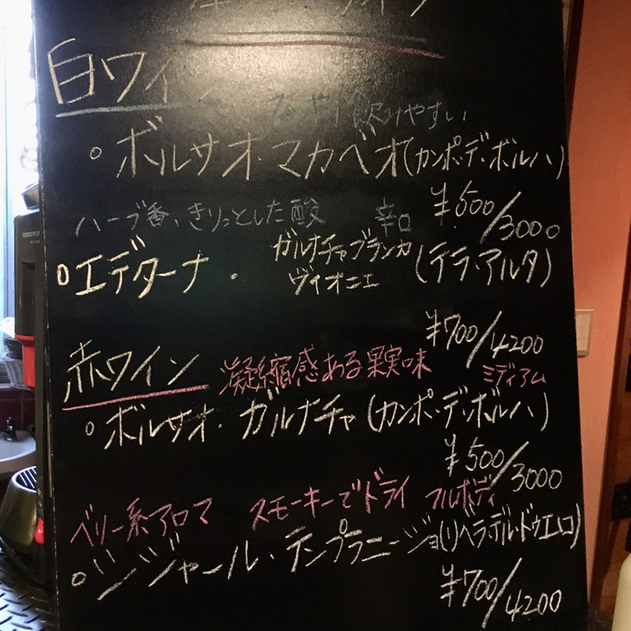 白ワイン
飲みやすい
・ボルサオ・マカベオ(カンポ・デ・ボルハ)
¥500/3000
ハーブ香、きりっとした酸 辛口
・エデターナ・ガルナチャブランカ ヴィオニエ (テラ・アルタ)
¥700/4200
赤ワイン 凝縮感ある果実味 ミディアム
・ボルサオ・ガルナチャ(カンポ・デ・ボルハ)
¥500/3000
ベリー系アロマ スモーキーでドライ フルボディ
・ジンジャール・テンプラニージョ(リベラ・デル・ドゥエロ)
¥700/4200